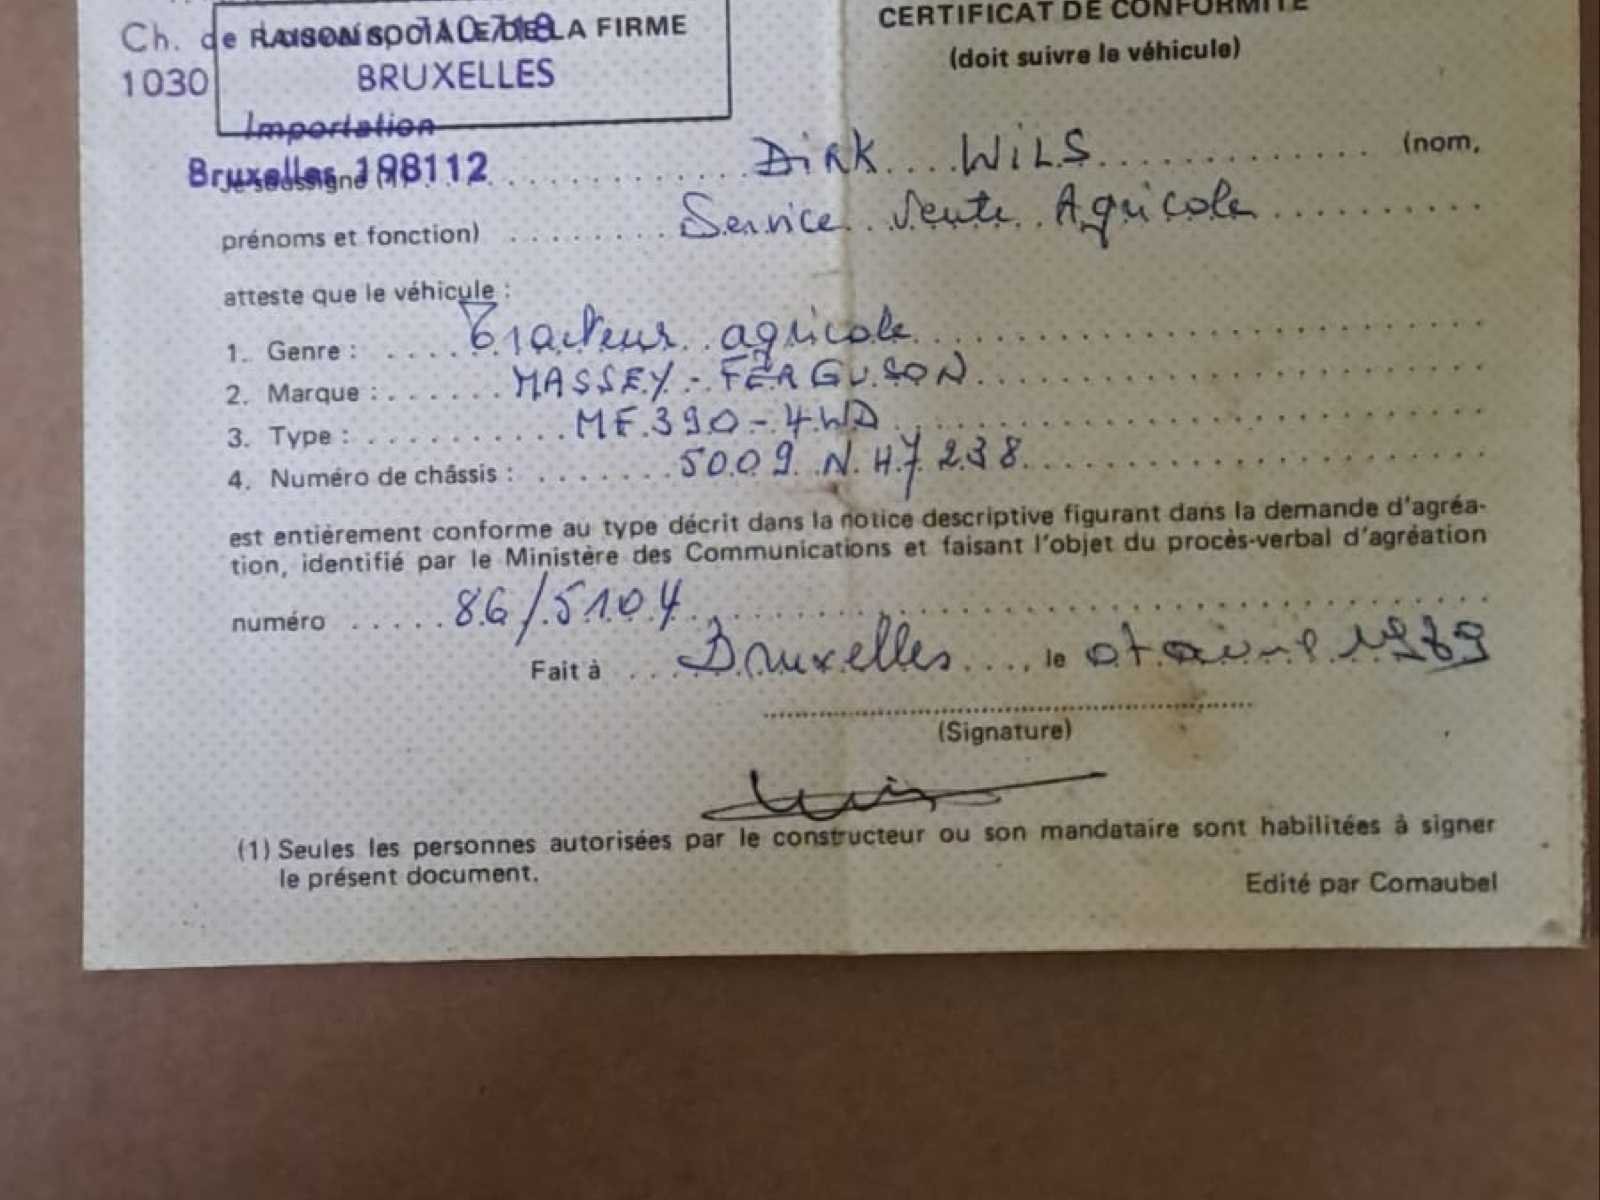 CERTIFICAT DE CONFORMITE
(doit suivre le véhicule)
Ch. de
RAISON SOCIALE DE LA FIRME
1030 BRUXELLES
Importation
Bruxelles 198112
Je soussigné (1) DIRK WILS (nom,
prénoms et fonction) Service Vente Agricole
atteste que le véhicule :
1. Genre : Tracteur agricole
2. Marque : MASSEY-FERGUSON
3. Type : MF 390-4WD
4. Numéro de châssis : 5009 N 47238
est entièrement conforme au type décrit dans la notice descriptive figurant dans la demande d'agréa-
tion, identifié par le Ministère des Communications et faisant l'objet du procès-verbal d'agréation
numéro 86/5104
Fait à Bruxelles, le 07 avril 1989
(Signature)
(1) Seules les personnes autorisées par le constructeur ou son mandataire sont habilitées à signer
le présent document.
Edité par Comaubel